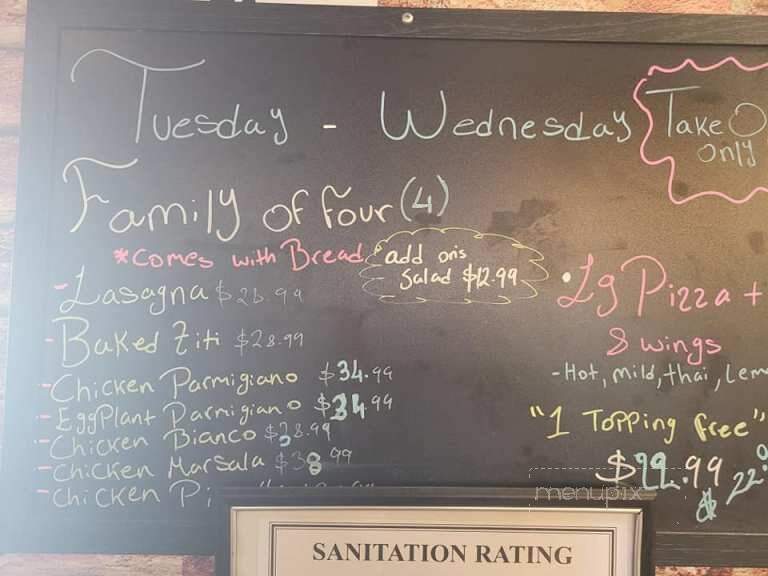 Tuesday - Wednesday
Take O
only
Family of four (4)
*Comes with Bread
add ons
Salad $12.99
- Lasagna $
- Baked Ziti $28.99
- Chicken Parmigiano $34.99
- EggPlant Parmigiano $34.99
- Chicken Bianco $38.99
- Chicken Marsala $38.99
- Chicken Pi
• Lg Pizza +
8 wings
- Hot, mild, thai, Lem
"1 Topping free"
$22.99
menupix
SANITATION RATING